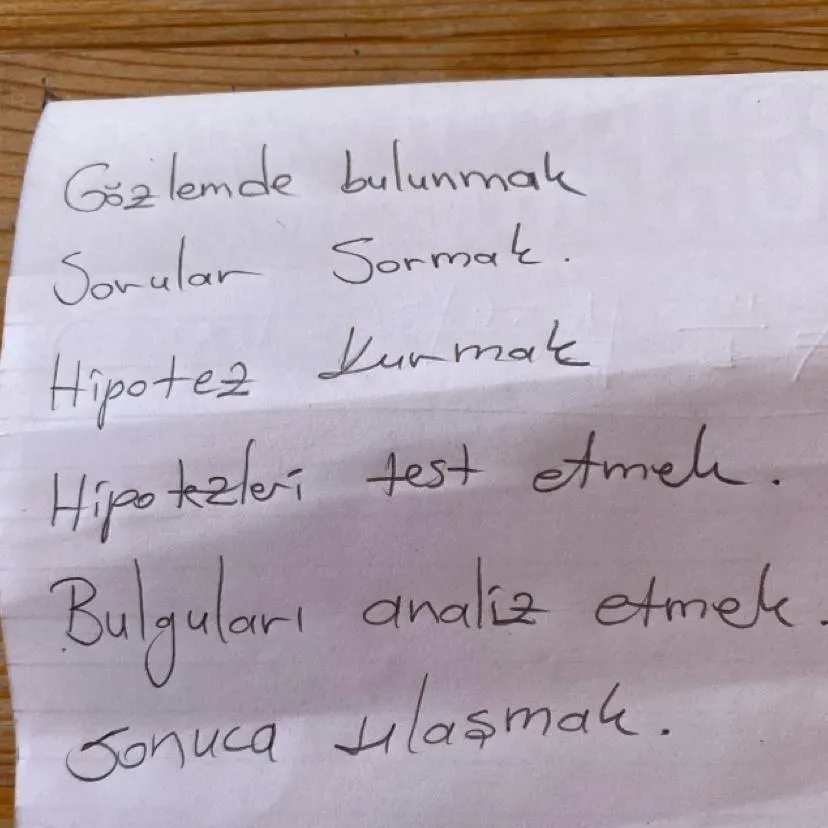 Gözlemde bulunmak
Sorular Sormak.
Hipotez Kurmak
Hipotezleri test etmek.
Bulguları analiz etmek.
Sonuca ulaşmak.